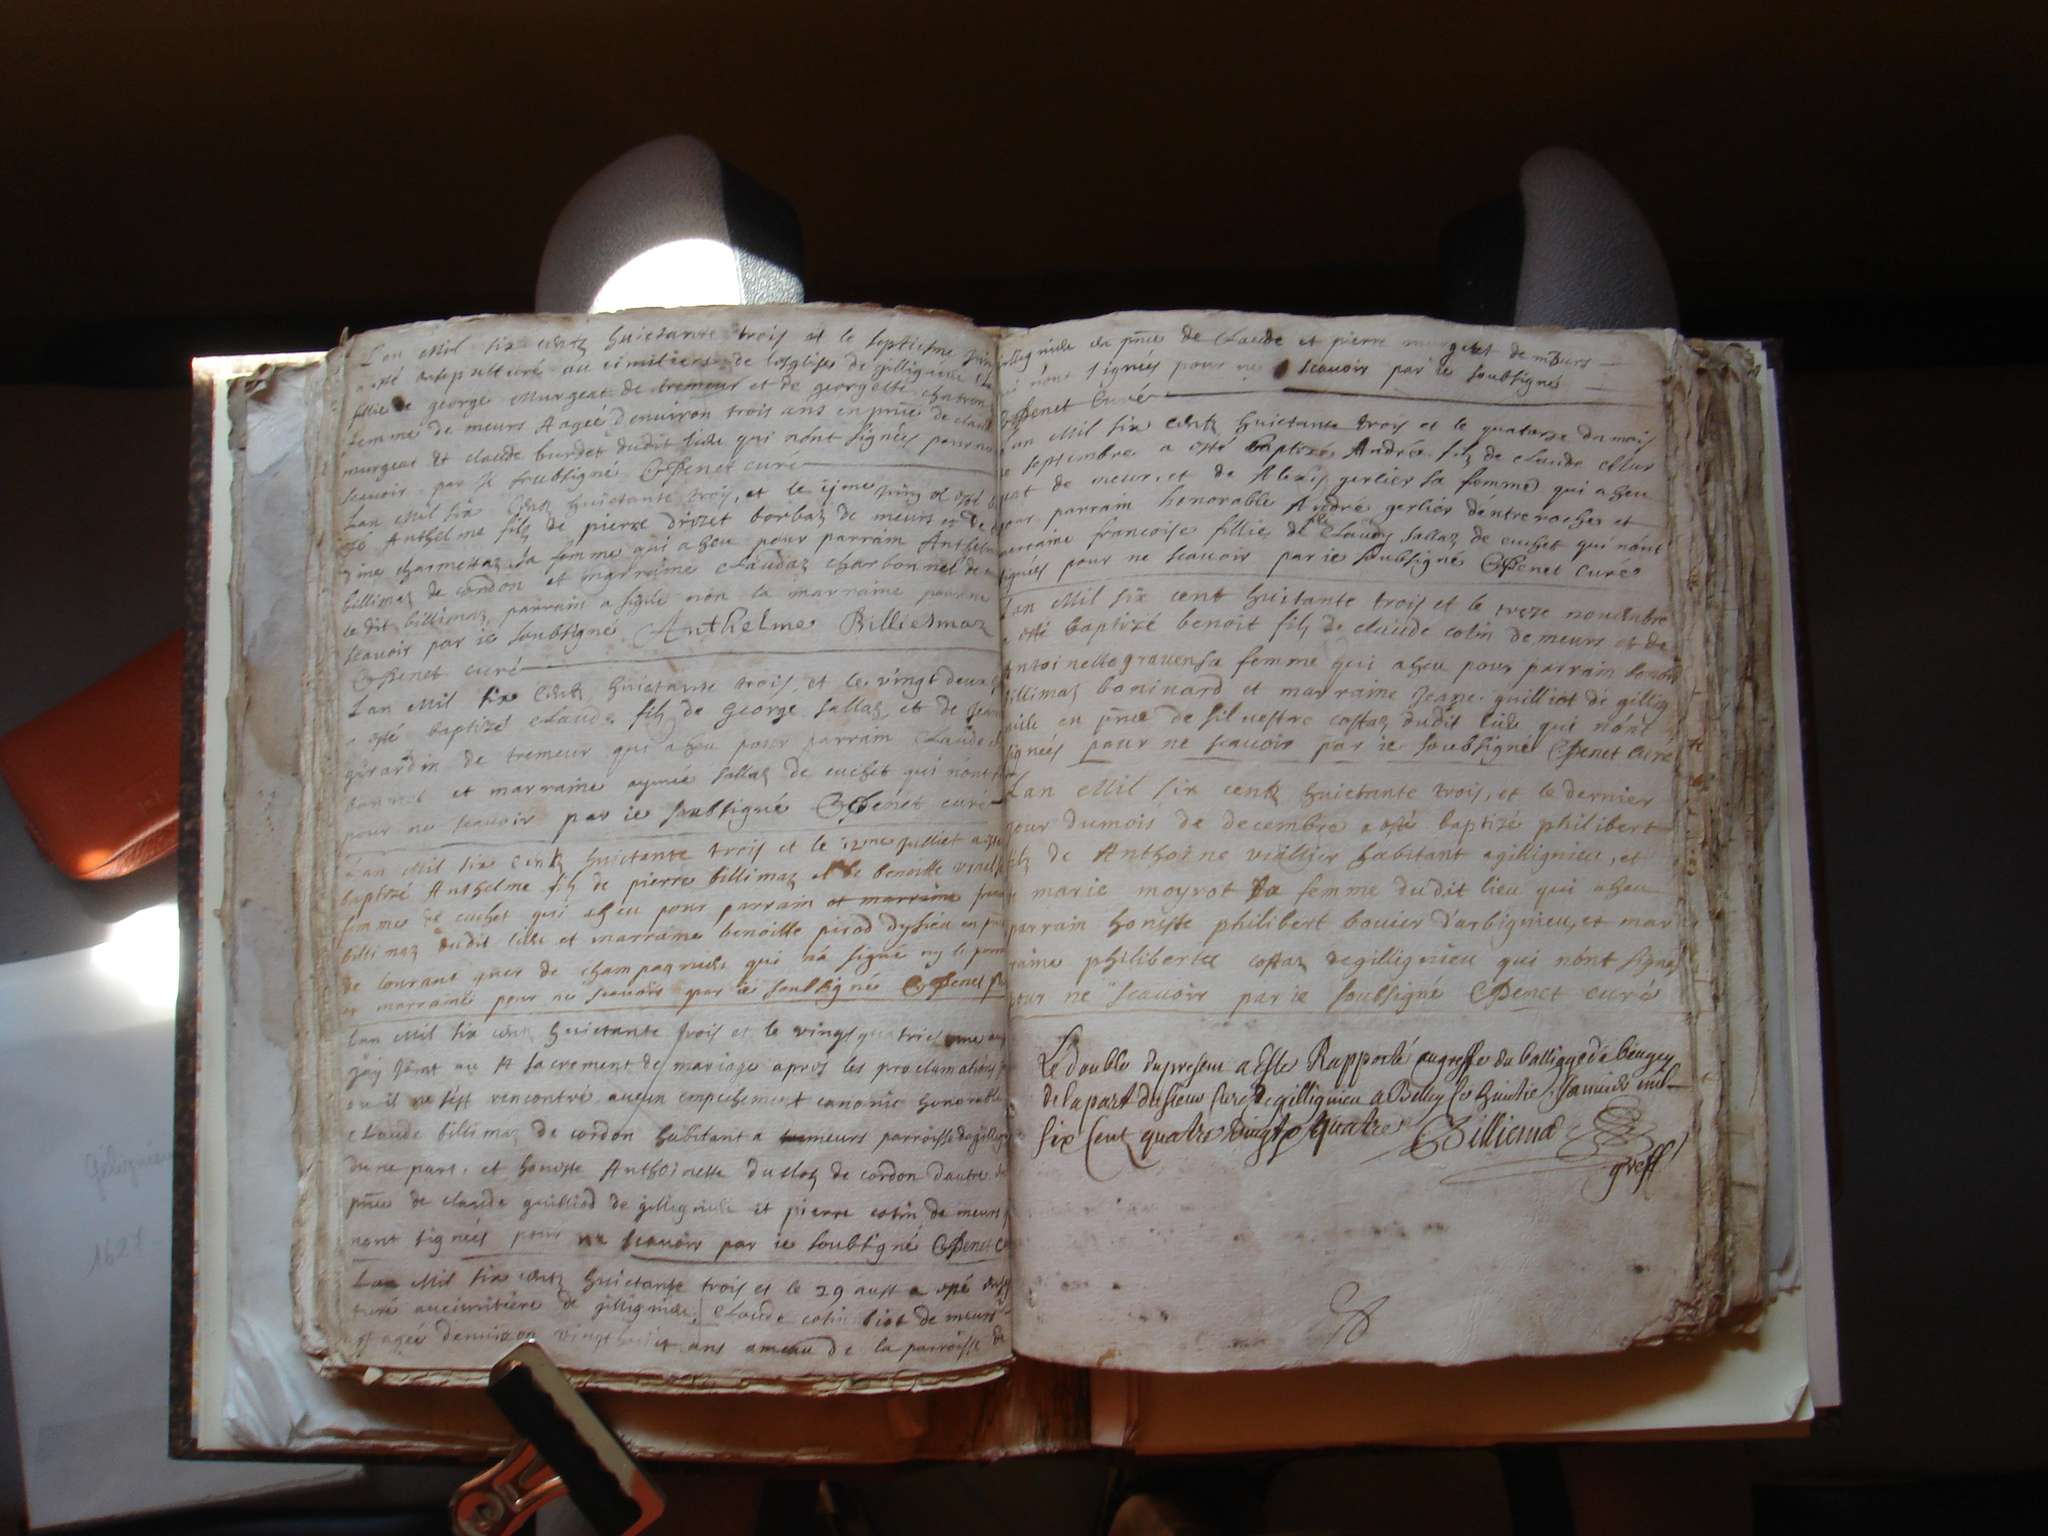 L'an Mil six centz huictante trois et le septiesme
a esté ensepulturé au cimitiere de l'esglise de gillignieu
fillie de george Murgeat de tremeur et de georgette
femme de meurs Aagée d'environ trois ans en pñce de claude
murgeat et claude burdet dudit lieu qui nónt signés pour ne
scavoir par ie soubsigné Penet curé
L'an Mil six centz huictante trois, et le juin a esté
Anthelme filz de pierre drizet borbaz de meurs et de
charmettaz sa femme qui a heu pour parrain Anthelme
billimaz de cordon et marraine Claudaz charbonnel de
ledit billimaz parrain a signé non la marraine pour ne
scavoir par ie soubsigné Anthelme Billiesmaz
Penet curé
L'an Mil six centz huictante trois, et le vingt deux
a esté baptizé claude filz de george sallaz et de
girardin de tremeur qui a heu pour parrain claude
et marraine aymée sallaz de cuchet qui nónt
pour ne scavoir par ie soubsigné Penet curé
L'an Mil six centz huictante trois et le juillet a esté
baptizé Anthelme filz de pierre billimaz et de benoitte
femme de cuchet qui a heu pour parrain et marraine
billimaz dudit lieu et marraine benoitte pirod dysieu en
de lourant de champagnieu qui ná signé ny le parrain
et marraine pour ne scavoir par ie soubsigné Penet
L'an Mil six centz huictante trois et le vingt quatriesme
j'ay joint au St sacrement de mariage apres les proclamations
ou il ne s'est rencontré aucun empechement canonic honorable
claude billimaz de cordon habitant a meurs parroisse de
d'une part, et honeste Anthoinette du cloz de cordon d'autre
pñce de claude guilliod de gillignieu et pierre cotin de meurs
nont signés pour ne scavoir par ie soubsigné Penet
L'an Mil six centz huictante trois et le 29 aust a esté
turé au cimitiere de gillignieu claude cotin de meurs
agée denviron vingt huict ans ameau de la parroisse de
gillignieu en pñce de claude et pierre murgeat de meurs
nónt signés pour ne scavoir par ie soubsigné
Penet Curé
L'an Mil six centz huictante trois et le quatorze du mois
de septembre a esté baptizé André filz de claude Mur
geat de meurs, et de Alexis gerlier sa femme qui a heu
pour parrain honorable André gerlier d'entreroches et
marraine francoise fillie de Claude sallaz de cuchet qui nónt
signés pour ne scavoir par ie soubsigné Penet Curé
L'an Mil six cent huictante trois et le treze novembre
a esté baptizé benoit filz de claude cotin de meurs et de
antoinette graven sa femme qui a heu pour parrain benoit
billimaz boninard et marraine Jeane guilliot de gillig
nieu en pñce de silvestre costaz dudit lieu qui nónt
signés pour ne scavoir par ie soubsigné Penet Curé
L'an Mil six centz huictante trois, et le dernier
jour du mois de decembre a esté baptizé philibert
filz de Anthoine viallier habitant a gillignieu, et
de marie moyrot sa femme dudit lieu qui a heu
parrain honeste philibert bovier d'arbignieu, et mar
raine philiberte costaz de gillignieu qui nónt signés
pour ne scavoir par ie soubsigné Penet curé
Le double du present a Este Rapporté au greffe du balliage de beugey
de la part du sieur Curé de gillignieu a Belley Ce huictie. Janvier mil
six Cent quatre vingts quatre Billiemaz
greff